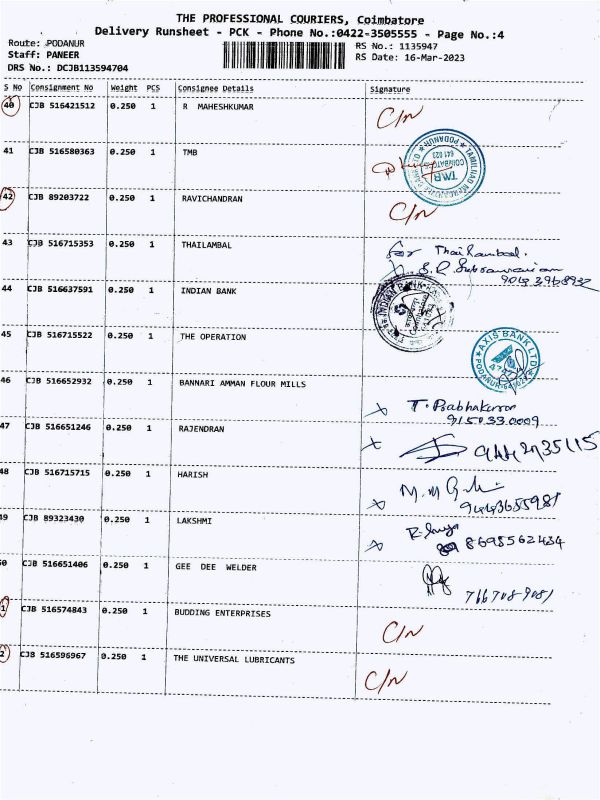 THE PROFESSIONAL COURIERS, Coimbatore
Delivery Runsheet - PCK - Phone No.:0422-3505555 - Page No.:4
Route: PODANUR
RS No.: 1135947
Staff: PANEER
RS Date: 16-Mar-2023
DRS No.: DCJB113594704
S No Consignment No Weight PCS Consignee Details Signature
40 CJB 516421512 0.250 1 R MAHESHKUMAR C/N
41 CJB 516580363 0.250 1 TMB
TAMILNAD MERCANTILE BANK
TMB
COIMBATORE
641 023
PODANUR
42 CJB 89203722 0.250 1 RAVICHANDRAN C/N
43 CJB 516715353 0.250 1 THAILAMBAL for Thailambal.
44 CJB 516637591 0.250 1 INDIAN BANK
INDIAN BANK
45 CJB 516715522 0.250 1 THE OPERATION
AXIS BANK LTD
PODANUR
46 CJB 516652932 0.250 1 BANNARI AMMAN FLOUR MILLS T. Prabhakaran
47 CJB 516651246 0.250 1 RAJENDRAN
48 CJB 516715715 0.250 1 HARISH
9443655981
49 CJB 89323430 0.250 1 LAKSHMI
8695562434
50 CJB 516651406 0.250 1 GEE DEE WELDER
1 CJB 516574843 0.250 1 BUDDING ENTERPRISES C/N
2 CJB 516596967 0.250 1 THE UNIVERSAL LUBRICANTS C/N